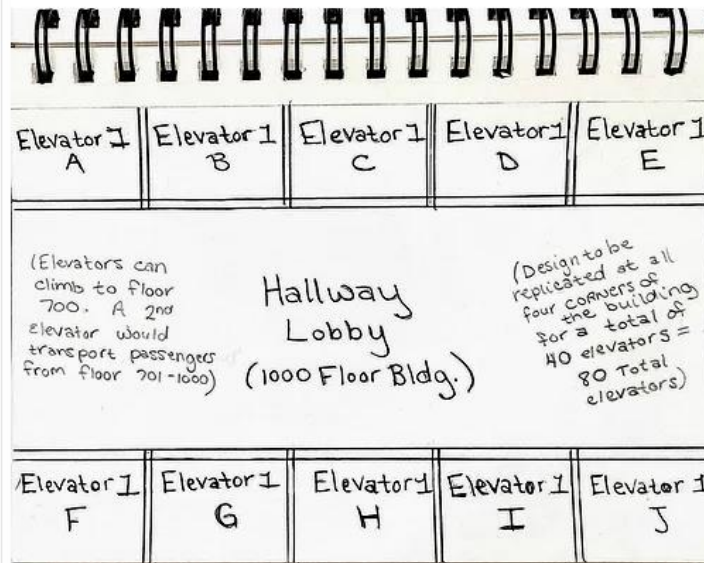 Elevator 1
A
Elevator 1
B
Elevator 1
C
Elevator 1
D
Elevator 1
E
(Elevators can
climb to floor
700. A 2nd
Elevator would
transport passengers
from floor 701-1000)
Hallway
Lobby
(1000 Floor Bldg.)
(Design to be
replicated at all
four corners of
the building
for a total of
40 elevators =
80 Total
elevators)
Elevator 1
F
Elevator 1
G
Elevator 1
H
Elevator 1
I
Elevator 1
J